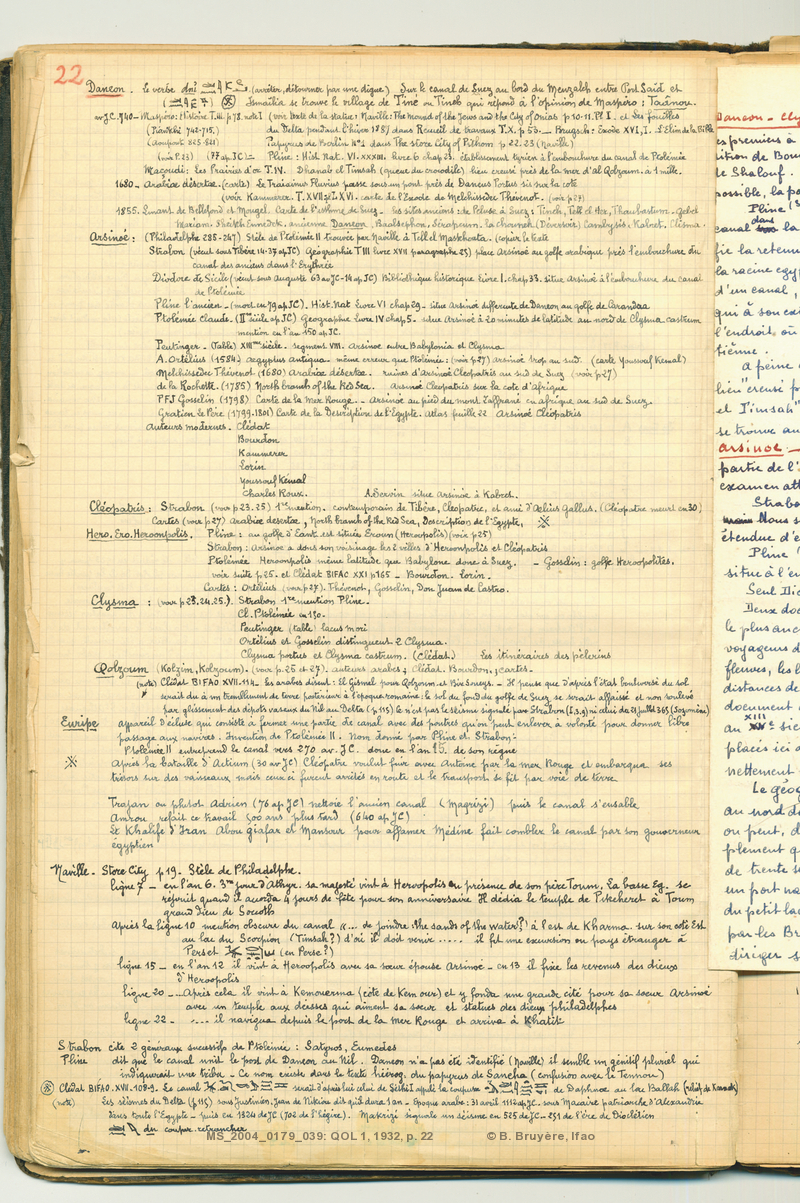 22
Daneon. le verbe dni (arrêter, détourner par une digue) Sur le canal de Suez au bord du Menzaleh entre Port Saïd et
Ismaïlia se trouve le village de Tiné ou Tineh qui répond à l'opinion de Maspero :
av JC. 740 - Maspero: Histoire T.III p 78. note 1 (voir texte de la statue: Naville: The Mound of the Jews and the City of Onias p 10-11. Pl I. et ses fouilles
(Piankhi 742-715.) du Delta pendant l'hiver 1887 dans Recueil de travaux T.X. p 53. — Brugsch: Exode XVI, I.
Papyrus de Berlin N°1 dans The store City of Pithom p 22.23 (Naville)
(voir P. 23) (77 ap JC) — Pline: Hist Nat. VI. XXXIII. livre 6 chap 23. établissement tyrien à l'embouchure du canal de Ptolémée
Maçoudi: Les Prairies d'or T.IV. Dhanab el Timsah (queue du crocodile) lieu creusé près de la mer d'al Qolzoum. à 1 mille.
1680 - Arabiæ désertæ. (carte) Le Traianus Fluvius passe sous un pont près de Daneos Portus sis sur la côte
(voir Kammerer. T. XVII et XVI. carte de l'Exode de Melchisédec Thévenot. (voir p 27)
1855. Linant de Bellefond et Mougel. Carte de l'isthme de Suez - les sites anciens: de Peluse à Suez: Tineh, Tell el Her, Thaubastum. Gebel
Mariam. Sheikh Ennedek. ancienne Daneon, Baalsephon, Serapeum. la chounah (Deversoir) Cambysis. Kabret. Clisma.
Arsinoé: (Philadelphe 285-247) Stèle de Ptolémée II trouvée par Naville à Tell el Maskhouta. (copier le texte
Strabon (vécut sous Tibère 14-37 ap JC) Géographie T III livre XVII paragraphe 25) place Arsinoé au golfe arabique près l'embouchure du
canal des anciens dans l'Erythrée
Diodore de Sicile (vécut sous Auguste 63 av JC-14 ap JC) Bibliothèque historique livre I. chap 33. situe Arsinoé à l'embouchure du canal
de Ptolémée
Pline l'ancien - (mort en 79 ap JC). Hist. Nat livre VI chap 29 - situe Arsinoé différente de Daneon au golfe de Carandra
Ptolémée Claude. (IIme siècle ap JC) Géographie livre IV chap 5 - situe Arsinoé à 20 minutes de latitude au nord de Clysma castrum
mention en l'an 150 ap JC.
Peutinger - (Table) XIIIme siècle. segment VIII. Arsinoe entre Babylonia et Clysma
A. Ortélius (1584) ægyptus antiqua - même erreur que Ptolémée: (voir p 27) arsinoé trop au sud. (carte Youssouf Kemal)
Melchisédec Thévenot (1680) Arabiæ désertæ. ruines d'Arsinoé Cléopatris au sud de Suez (voir p 27)
de la Rochette. (1785) North branch of the Red Sea. Arsinoé Cleopatris sur la côte d'Afrique
P.F.J Gosselin (1798) Carte de la Mer Rouge. — Arsinoé au pied du mont Zaffrané en afrique au sud de Suez.
Gratien Le Père (1799-1801) Carte de la Description de l'Egypte. Atlas feuille 22 Arsinoé Cléopatris
Auteurs modernes. Clédat
Bourdon
Kammerer
Lorin
Youssouf Kemal
Charles Roux. A. Servin situe Arsinoé à Kabret.
Cléopatris: Strabon (voir p 23. 25) 1re mention. contemporain de Tibère, Cléopatre, et ami d'Ælius Gallus. (Cléopâtre meurt en 30)
Cartes (voir p 27) Arabiæ désertæ, North branch of the Red Sea, Description de l'Egypte. ※
Hero. Ero. Heroonpolis. Pline: au golfe d'Eant est située Eroun (Heroopolis) (voir p 25)
Strabon: Arsinoé a dans son voisinage les 2 villes d'Heroonpolis et Cléopatris
Ptolémée Heroonpolis même latitude que Babylone donc à Suez. — Gosselin: golfe Heroopolites.
voir suite p 25. et Clédat BIFAO XXI p 165 — Bourdon. Lorin.
Cartes: Ortélius (voir p 27). Thévenot, Gosselin, Don Juan de Castro.
Clysma: (voir p 23. 24. 25.). Strabon 1re mention Pline.
Cl. Ptolémée en 150.
Peutinger (table) lacus mori
Ortélius et Gosselin distinguent 2 Clysma.
Clysma portus et Clysma castrum. (Clédat.) Les itinéraires des pélerins
Qolzoum (Kolzim, Kolzoum). (voir p. 25 et 27). auteurs arabes, Clédat. Bourdon, cartes.
(note) Clédat BIFAO XVII. 114. les arabes disent: El Gismel pour Qolzoum et Bir Soueys. - Il pense que d'après l'état bouleversé du sol
serait dû à un tremblement de terre postérieur à l'époque romaine: le sol du fond du golfe de Suez se serait affaissé et non soulevé
par glissement des dépôts vaseux du Nil au Delta (p 115) Ce n'est pas le séisme signalé par Strabon (I.3.9) ni celui du 21 juillet 365 (Sozomène)
Euripe appareil d'écluse qui consiste à fermer une partie du canal avec des poutres qu'on peut enlever à volonté pour donner libre
passage aux navires. Invention de Ptolémée II. Nom donné par Pline et Strabon -
Ptolémée II entreprend le canal vers 270 av. JC. donc en l'an 15. de son règne
※ Après la bataille d'Actium (30 av JC) Cléopâtre voulut fuir avec Antoine par la mer Rouge et embarqua ses
trésors sur des vaisseaux mais ceux-ci furent arrêtés en route et le transport se fit par voie de terre
Trajan ou plutot Adrien (76 ap JC) nettoie l'ancien canal (Magrizi) puis le canal s'ensable
Amrou refait ce travail 500 ans plus tard (640 ap JC)
Le Khalife d'Iran Abou Giafar el Mansour pour affamer Médine fait combler le canal par son gouverneur
egyptien
Naville. Store City p 19. Stèle de Philadelphe.
ligne 7 — en l'an 6. 3me jour d'Athyr. sa majesté vint à Heroopolis en présence de son père Toum. La basse Eg. se
rejouit quand il accorda 4 jours de fête pour son anniversaire Il dédia le temple de Pikeheret à Toum
grand dieu de Succoth
Après la ligne 10 mention obscure du canal «... de joindre (the sands of the water?) à l'est de Kharma. sur son coté Est
au lac du Scorpion (Timsah?) d'où il doit venir ..... il fit une excursion au pays étranger à
Perset (en Perse?)
ligne 15 — en l'an 12 il vint à Heroopolis avec sa sœur épouse Arsinoé - en 13 il fixe les revenus des dieux
d'Heroopolis
ligne 20 — Après cela il vint à Kemouerma (côté de Kem our) et y fonda une grande cité pour sa soeur Arsinoé
avec un temple aux déesses qui aiment sa soeur et statues des dieux philadelphes
ligne 22 — .... il navigua depuis le port de la mer Rouge et arriva à Khatit
Strabon cite 2 généraux successifs de Ptolémée: Satyros, Eumedes
Pline dit que le canal unit le port de Daneon au Nil. Daneon n'a pas été identifié (Naville) il semble un génitif pluriel qui
indiquerait une tribu - Ce nom existe dans le texte hiérog. du papyrus de Saneha (confusion avec le Tennou)
※ Clédat BIFAO. XVII. 108-9. Le canal serait d'après lui celui de Séthi I appelé la coupure de Daphnae au lac Ballah (relief de Karnak)
(note) Les séismes du Delta (p 115) sous Justinien, Jean de Nikiou dit qu'il dura 1 an - Epoque arabe: 31 avril 1112 ap JC. sous Macaire patriarche d'Alexandrie
dans toute l'Egypte - puis en 1324 de JC (702 de l'hégire). Makrizi signale un séisme en 525 de JC - 251 de l'ère de Dioclétien
dn couper retrancher
MS_2004_0179_039: QOL 1, 1932, p. 22 © B. Bruyère, Ifao
Daneon - Cly
les premiers à
de Shalouf.
possible, la po
Pline (3
dans
canal la
fie la retenu
la racine egyp
d'un canal,
qui à son ex
l'endroit où
tième.
A peine
lieu "creusé p
el Timsah"
se trouve au
arsinoe —
partie de l'
examen att
Strabo
Nous s
étendue d'e
Pline
situe à l'e
Seul Dio
Deux doc
le plus anc
voyageurs d
fleuves, les l
distances de
document
XIII
au siè
placés ici a
nettement
Le géog
au nord de
on peut, d
plement q
de trente s
un port na
du petit lac
par les Br
diriger s